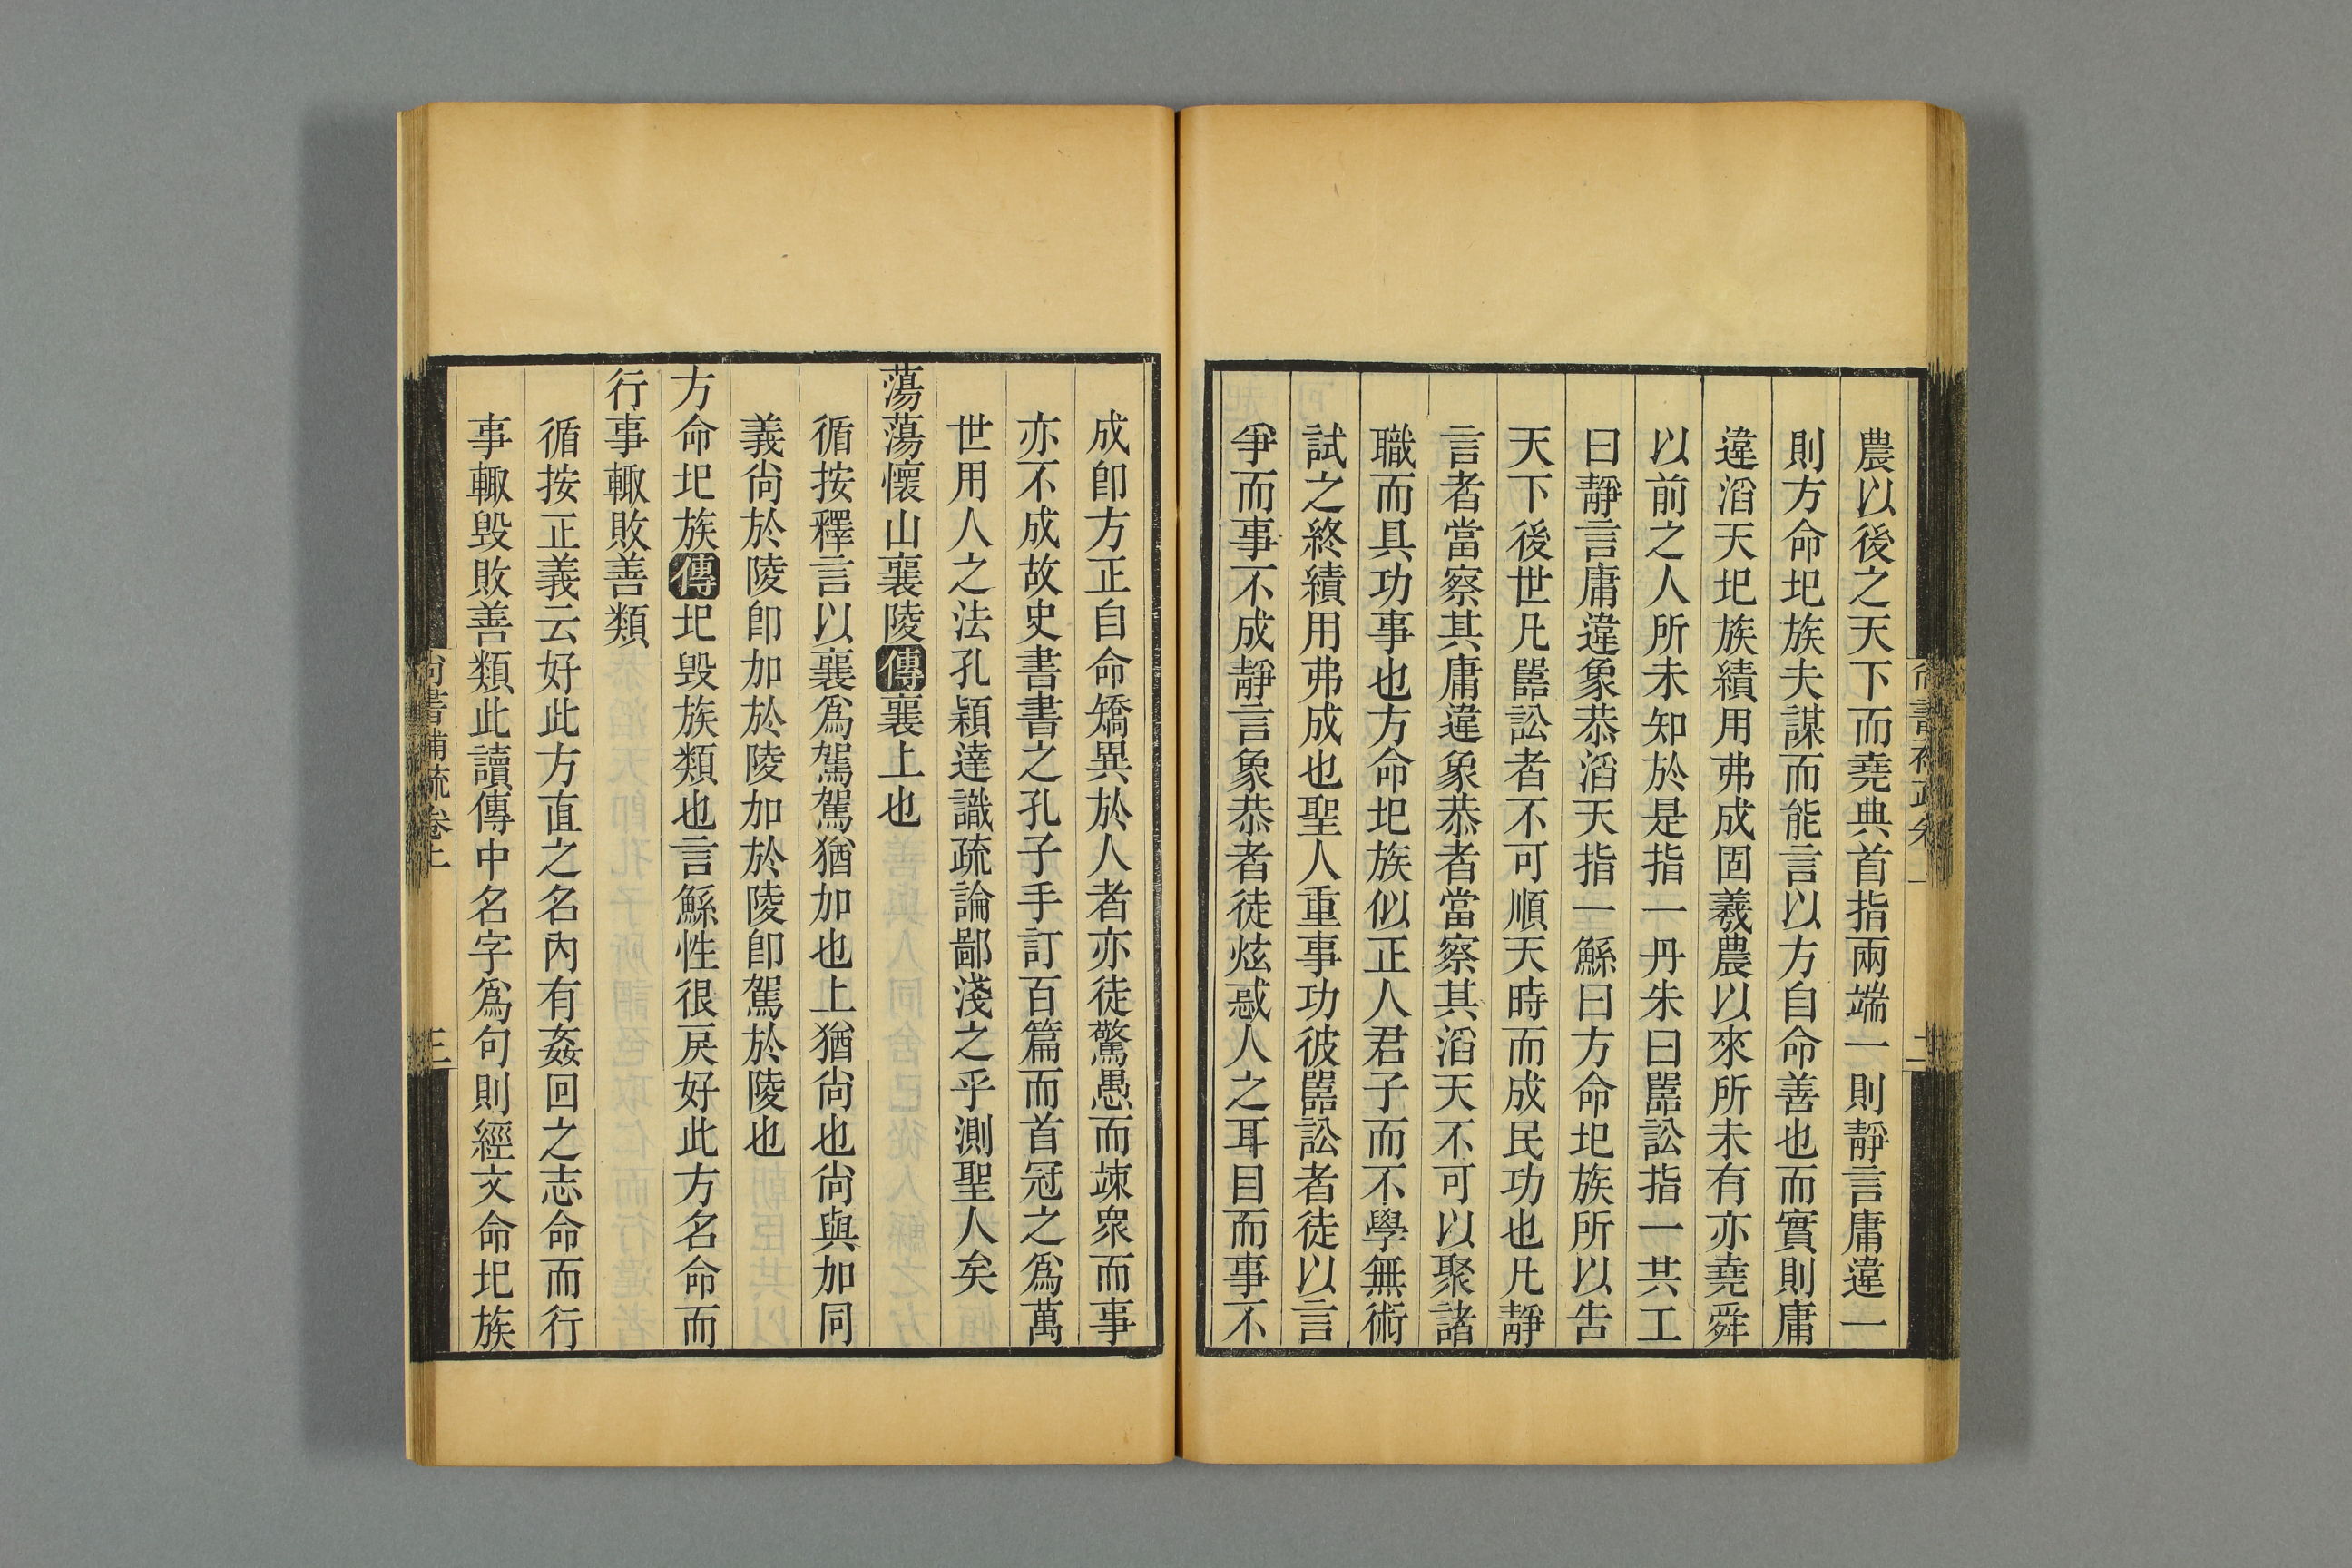 農以後之天下而堯典首指兩端一則靜言庸違一
則方命圮族夫謀而能言以方自命善也而實則庸
違滔天圮族績用弗成固羲農以來所未有亦堯舜
以前之人所未知於是指一丹朱曰嚚訟指一共工
曰靜言庸違象恭滔天指一鯀曰方命圮族所以告
天下後世凡嚚訟者不可順天時而成民功也凡靜
言者當察其庸違象恭者當察其滔天不可以聚諸
職而具功事也方命圮族似正人君子而不學無術
試之終績用弗成也聖人重事功彼嚚訟者徒以言
爭而事不成靜言象恭者徒炫惑人之耳目而事不
成卽方正自命矯異於人者亦徒驚愚而竦衆而事
亦不成故史書書之孔子手訂百篇而首冠之爲萬
世用人之法孔穎達識疏論鄙淺之乎測聖人矣
蕩蕩懷山襄陵傳襄上也
循按釋言以襄爲駕駕猶加也上猶尙也尙與加同
義尙於陵卽加於陵加於陵卽駕於陵也
方命圮族傳圮毀族類也言鯀性很戾好此方名命而
行事輒敗善類
循按正義云好此方直之名內有姦回之志命而行
事輒毀敗善類此讀傳中名字爲句則經文命圮族
尙書補疏卷上
三